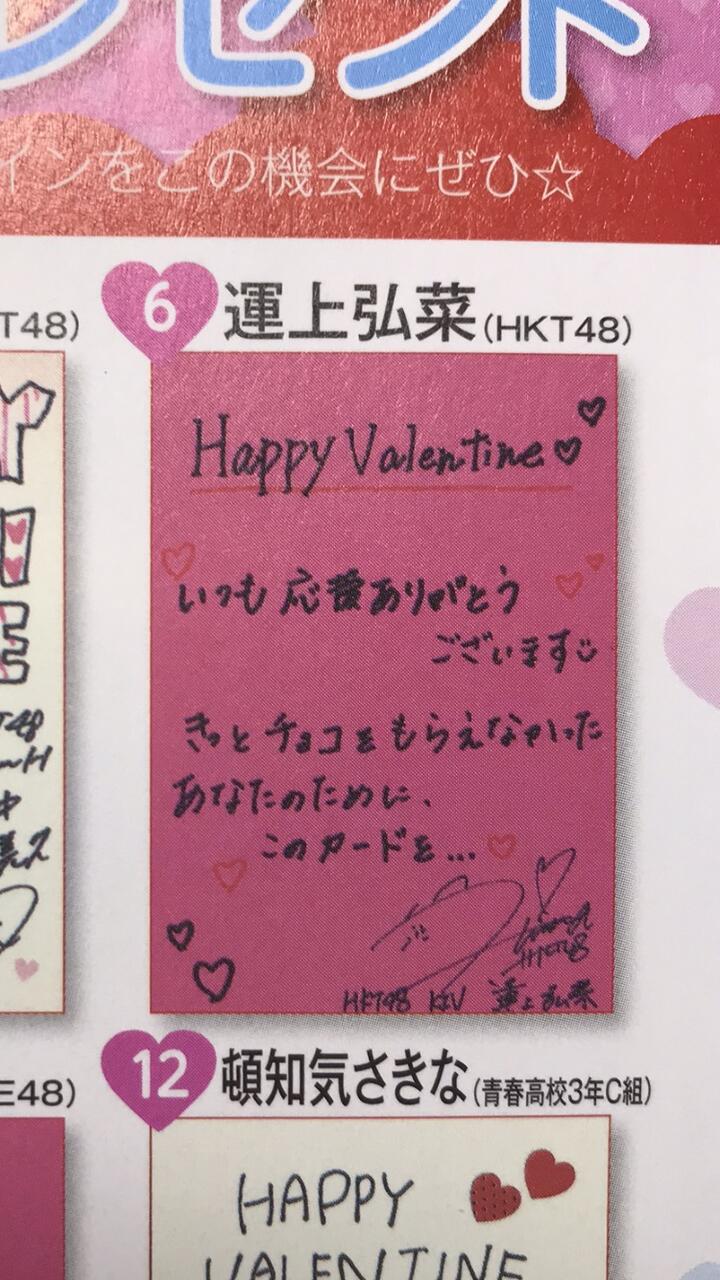 レゼント
インをこの機会にぜひ☆
T48)
6 運上弘菜(HKT48)
Happy Valentine♡♡
いつも応援ありがとう
ございます
きっとチョコをもらえなかった
あなたのために、
このカードを...
HKT48
HKT48 KIV 運上弘菜
E48)
12 頓知気さきな(青春高校3年C組)
HAPPY
VALENTINE